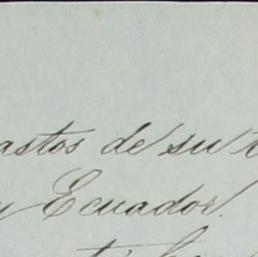 astos de su t
y Ecuador.